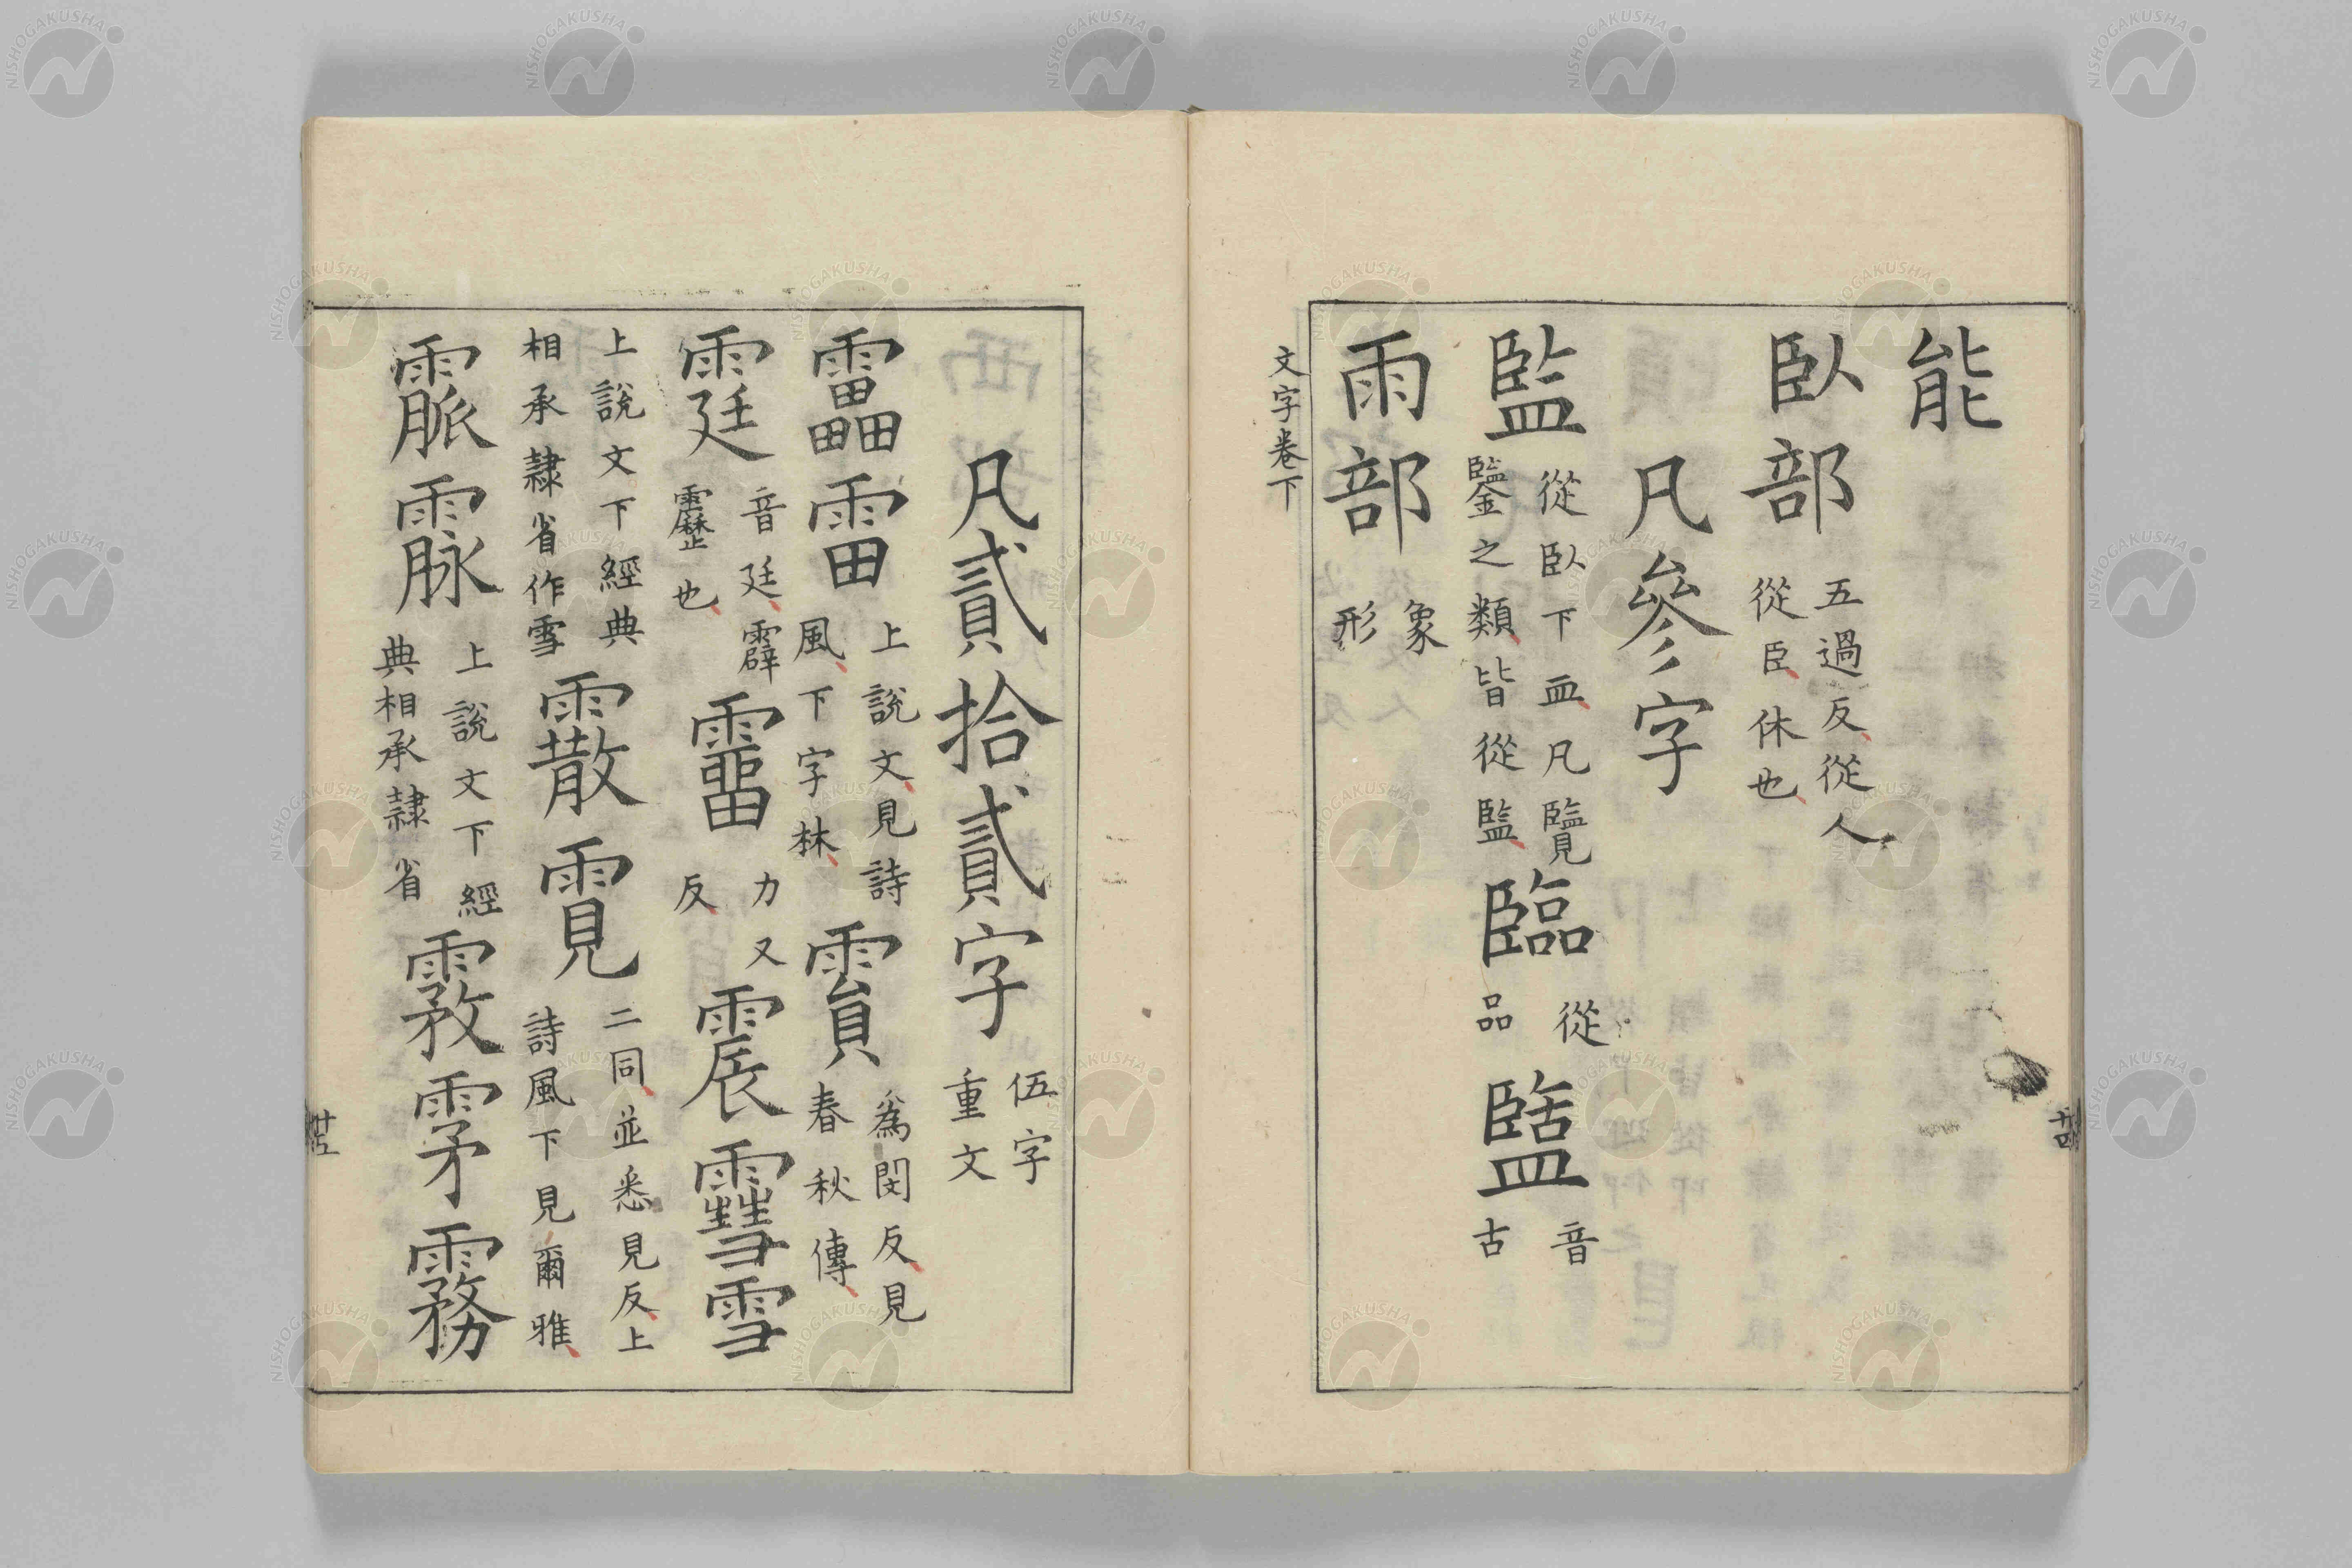 能
臥部 五過反從人
從臣休也
凡參字
監 從臥下血凡覽
鑒之類皆從監 臨 從
品 盬 音
古
雨部 象
形
文字卷下
十四
凡貳拾貳字 伍字
重文
靁雷 上說文見詩
風下字林 霣 爲閔反見
春秋傳
霆 音廷霹
靂也 霤 力又
反 震䨮雪
上說文下經典
相承隸省作雪 霰䨘 二同並悉見反上
詩風下見爾雅
霢霡 上說文下經
典相承隸省 雺霧
NISHOGAKUSHA